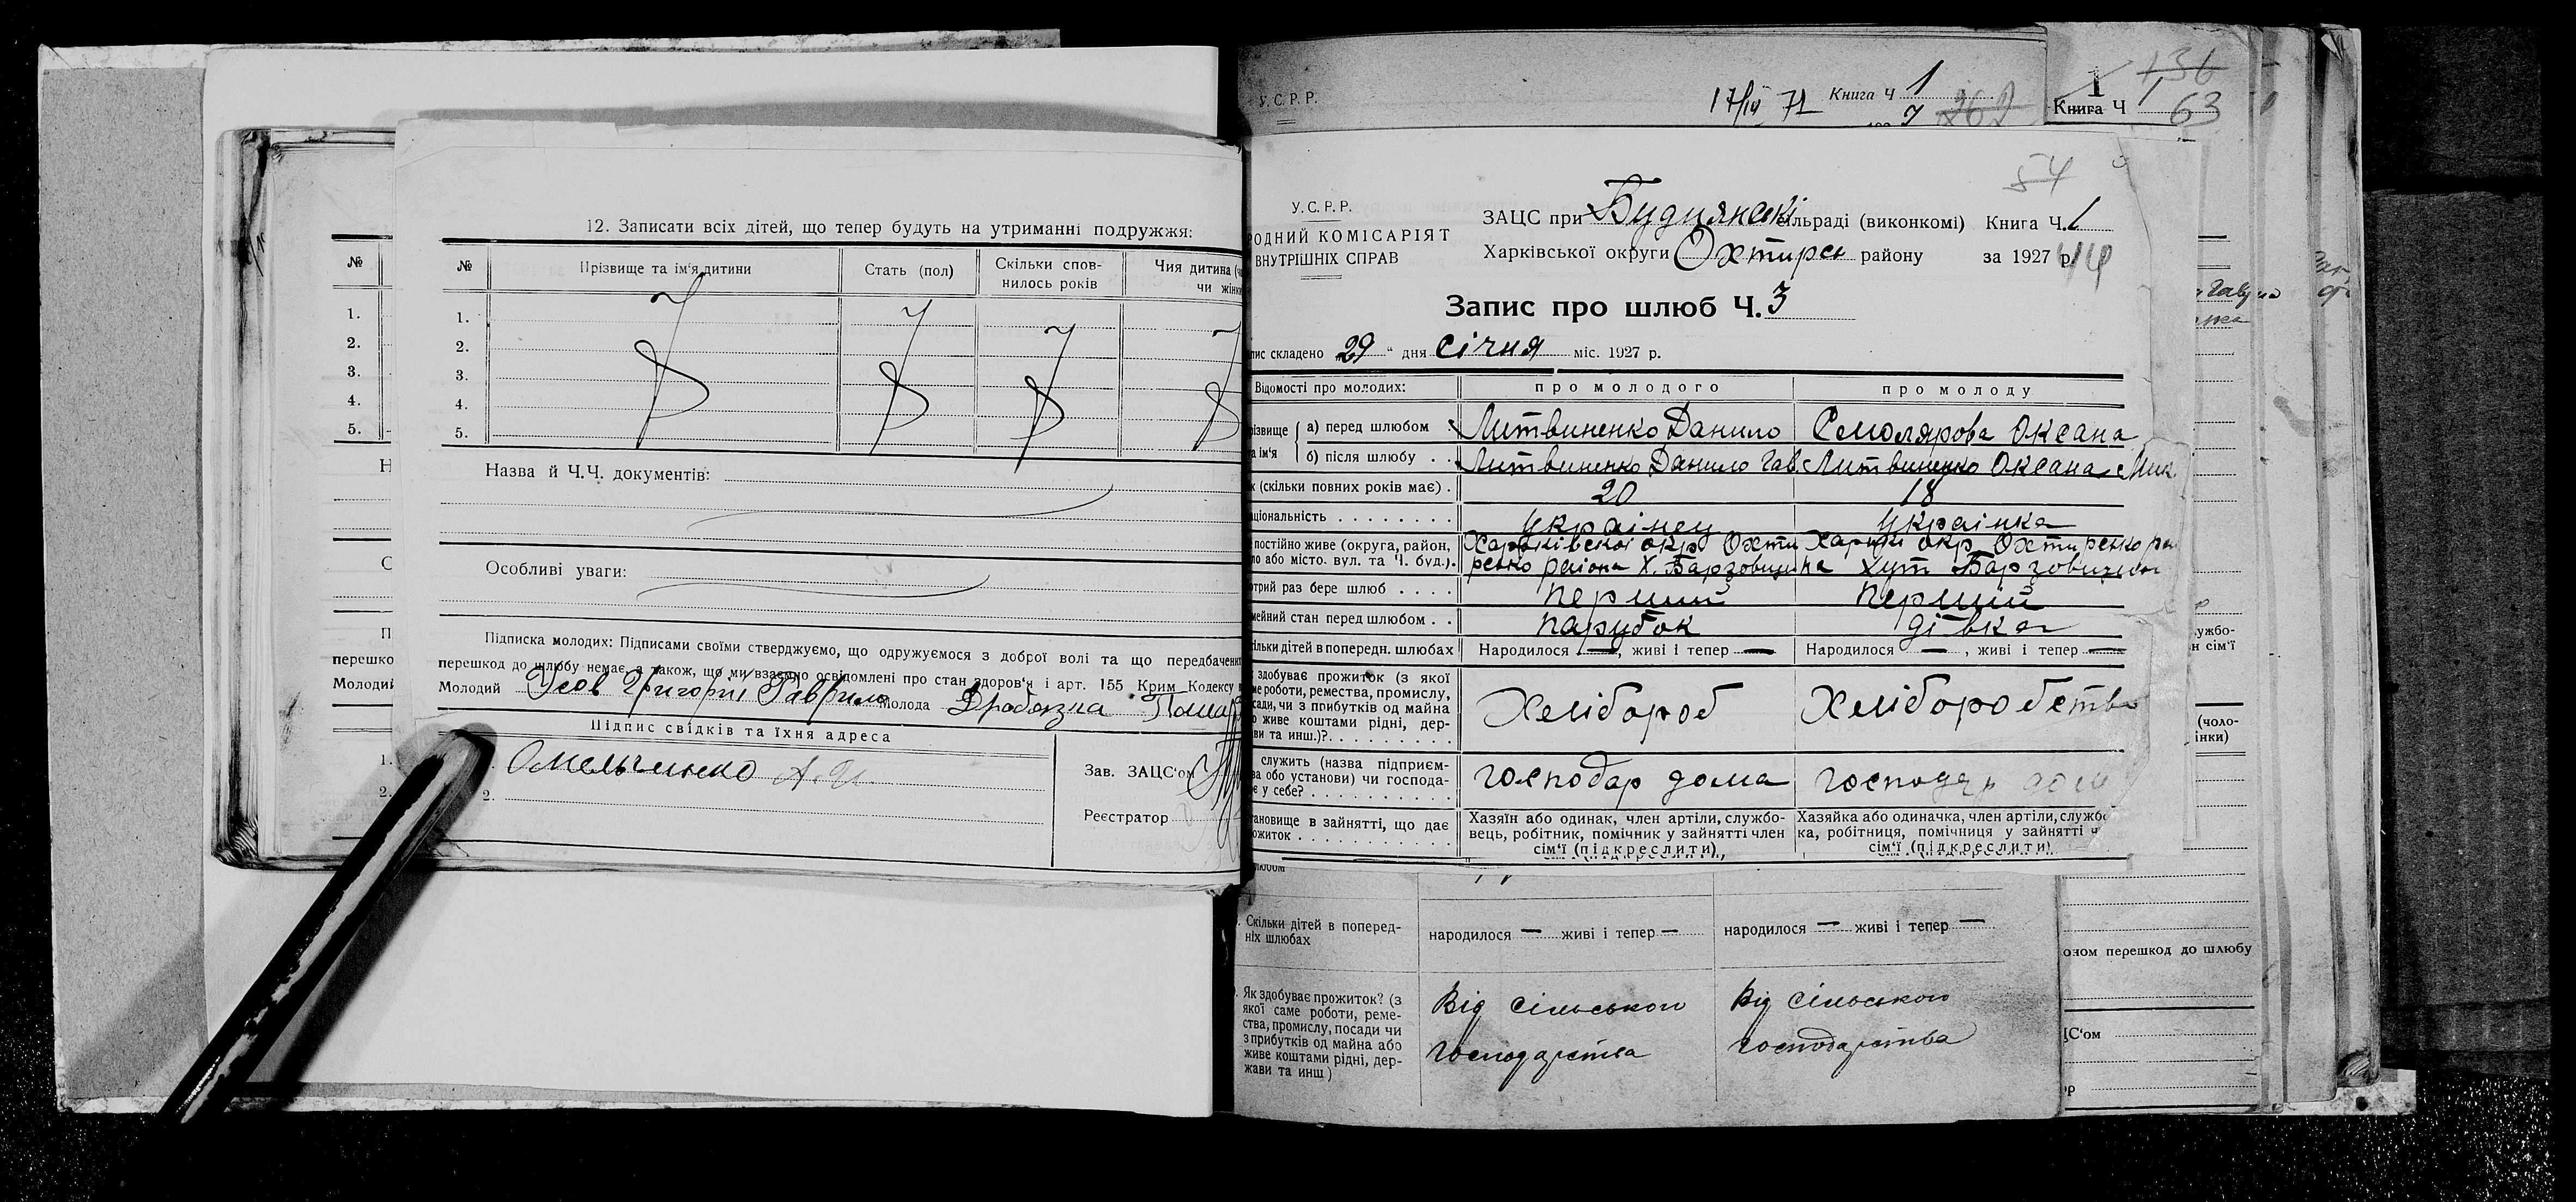 12. Записати всіх дітей, що тепер будуть на утриманні подружжя:
№
№
Прізвище та ім'я дитини
Стать (пол)
Скільки спов-
нилось років
Чия дитина
чи жінки
1.
2.
3.
4.
5.
1.
2.
3.
4.
5.
Назва й Ч.Ч. документів:
Особливі уваги:
Підписка молодих: Підписами своїми стверджуємо, що одружуємося з доброї волі та що передбачених
перешкод до шлюбу немає, а також, що ми взаємно освідомлені про стан здоров'я і арт. 155 Крим. Кодексу
Молодий Усов Григорій Гаврило молода Дробязка
Підпис свідків та їхня адреса
Омельченко
2.
Зав. ЗАЦС'ом
Реєстратор
перешко
Молодий
У.С.Р.Р.
17/IV 71 Книга Ч 1
7 262
1 136
Книга Ч 1
63
54
У.С.Р.Р.
РОДНИЙ КОМІСАРІЯТ
ВНУТРІШНІХ СПРАВ
ЗАЦС при Будянскі сільраді (виконкомі) Книга Ч. 1
Харківської округи Охтирсь району за 1927 р.
Запис про шлюб Ч. 3
пис складено 29 " дня січня міс. 1927 р.
Відомості про молодих:
про молодого
про молоду
різвище
та ім'я
а) перед шлюбом Литвиненко Данило Смолярова Оксана
б) після шлюбу . . Литвиненко Данило Гав. Литвиненко Оксана Мик
к (скільки повних років має) . 20 18
аціональність . . . . . . . . українец українка
постійно живе (округа, район,
ло або місто. вул. та Ч. буд.).
Харьківскоі окр Охти
рсько раіона Х. Барзовщина
Харькі окр Охтирсько ра
Хут Барзовщина
отрий раз бере шлюб . . . . перший перший
мейний стан перед шлюбом . . парубок дівка
ільки дітей в попередн. шлюбах Народилося —, живі і тепер — Народилося —, живі і тепер —
здобуває прожиток (з якої
ме роботи, ремества, промислу,
сади, чи з прибутків од майна
о живе коштами рідні, дер-
ви та инш.)?. . . . . . . . . .
Хлібороб
Хліборобство
служить (назва підприєм-
ва або установи) чи господа-
є у себе? . . . . . . . . . .
господар дома
господар дом
ановище в зайнятті, що дає
ожиток . . . . . . . . . . .
Хазяїн або одинак, член артіли, службо-
вець, робітник, помічник у зайнятті член
сім'ї (підкреслити),
Хазяйка або одиначка, член артіли, служб
ка, робітниця, помічниця у зайнятті ч
сім'ї (підкреслити)
Скільки дітей в поперед-
ніх шлюбах
народилося — живі і тепер —
народилося — живі і тепер —
Як здобуває прожиток? (з
якої саме роботи, реме-
ства, промислу, посади чи
з прибутків од майна або
живе коштами рідні, дер-
жави та инш)
Від сільського
господарства
Від сільського
господарства
ужбо-
н сім'ї
(чоло-
інки)
оном перешкод до шлюбу
ЦС'ом
ор